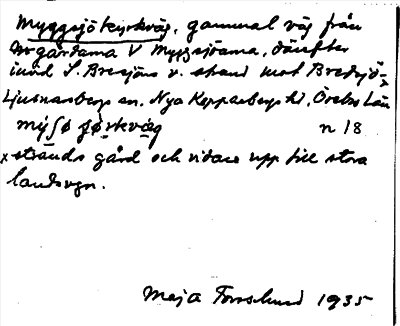 Myggsjökyrkväg, gammal väg från
Norgårdarna V Myggsjöarna, därefter
invid S. Bresjöns v. strand mot Bredsjö-
Ljusnarsbergs sn. Nya Kopparbergs hd, Örebro Län
mýʃø ʃørkvæg n 18
x strands gård och vidare upp till stora
landsvgn.
Maja Forsslund 1935